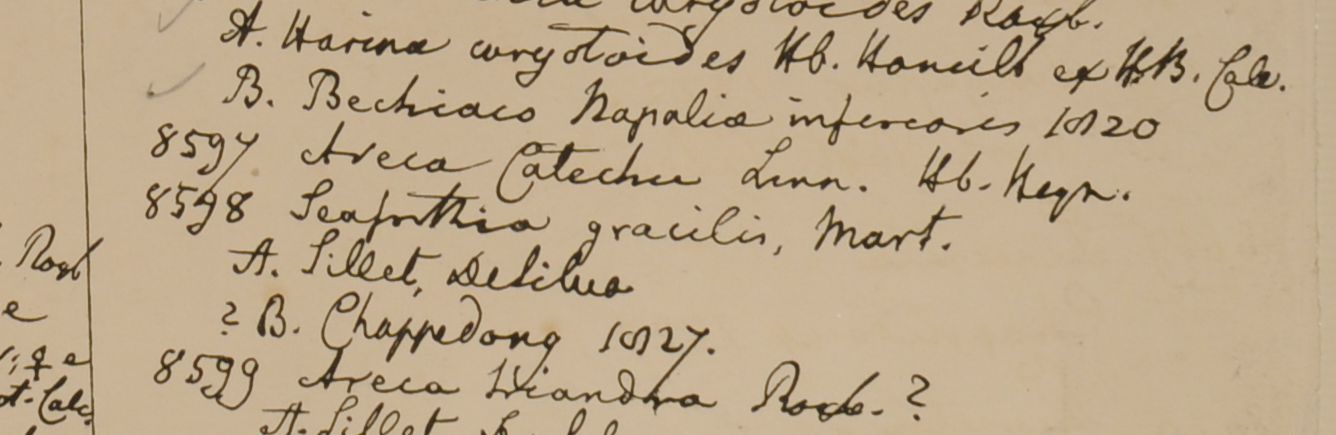 caryotoides Roxb.
A. Harina caryotoides Hb. Hamilt ex H.B. Calc.
B. Bechiaco Napalia inferioris 1820
8597 Areca Catechu Linn. Hb. Heyn.
8598 Seaforthia gracilis, Mart.
A. Sillet, DeSilva
? B. Chappedong 1827.
8599 Areca triandra Roxb. ?
A. Sillet
Roxb
e
; & e
t. Calc.